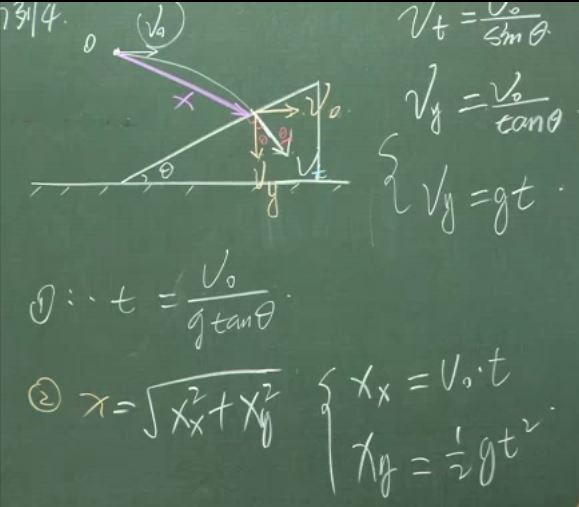 例4.
0
V₀
x
V₀
θ
θ
θ
Vy
Vt
Vt = V₀/sinθ
Vy = V₀/tanθ
{ Vy = gt.
① ∴ t = V₀/(g tanθ).
② x = √(Xx² + Xy²)
{ Xx = V₀·t
Xy = ½gt².